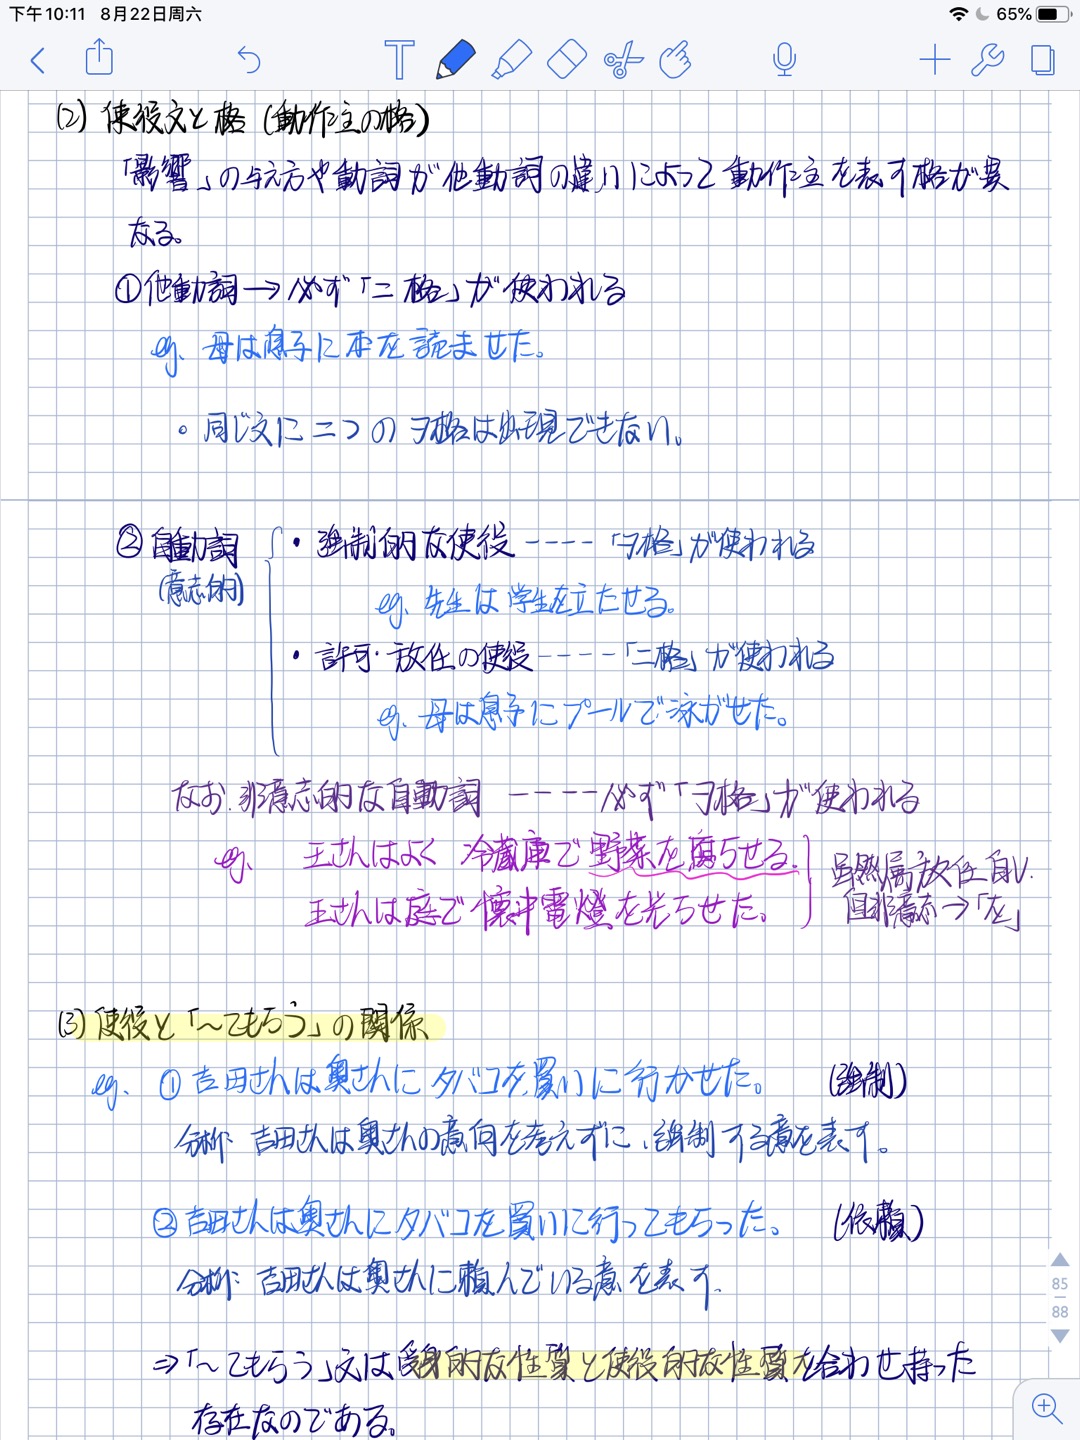 下午10:11 8月22日周六
65%
(2) 使役文と格 (動作主の格)
「影響」の与え方や動詞が他動詞の違いによって動作主を表す格が異
なる。
①他動詞→必ず「ニ格」が使われる
eg. 母は息子に本を読ませた。
・同じ文に二つのヲ格は出現できない。
②自動詞 ・強制的な使役 ---- 「ヲ格」が使われる
(意志的)
eg. 先生は学生を立たせる。
・許可・放任の使役 ---- 「ニ格」が使われる
eg. 母は息子にプールで泳がせた。
なお、非意志的な自動詞 ---- 必ず「ヲ格」が使われる
eg. 王さんはよく冷蔵庫で野菜を腐らせる。
虽然属放任自V.
王さんは庭で懐中電燈を光らせた。
但非意志→「を」
(3) 使役と「～てもらう」の関係
eg. ①吉田さんは奥さんにタバコを買いに行かせた。 (強制)
分析: 吉田さんは奥さんの意向を考えずに、強制する意を表す。
②吉田さんは奥さんにタバコを買いに行ってもらった。 (依頼)
分析: 吉田さんは奥さんに頼んでいる意を表す.
⇒「～てもらう」文は受身的な性質と使役的な性質を合わせ持った
存在なのである。
85
88